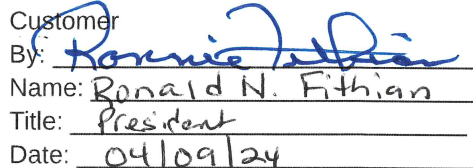 Customer
By: Ronnie Fithian
Name: Ronald N. Fithian
Title: President
Date: 04/09/24